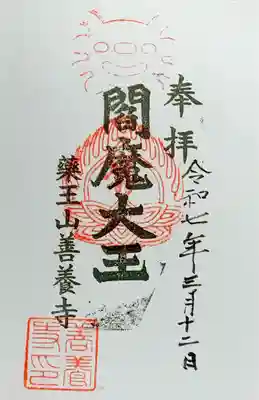 奉拝
令和七年三月十二日
閻魔大王
薬王山善養寺
善養寺印